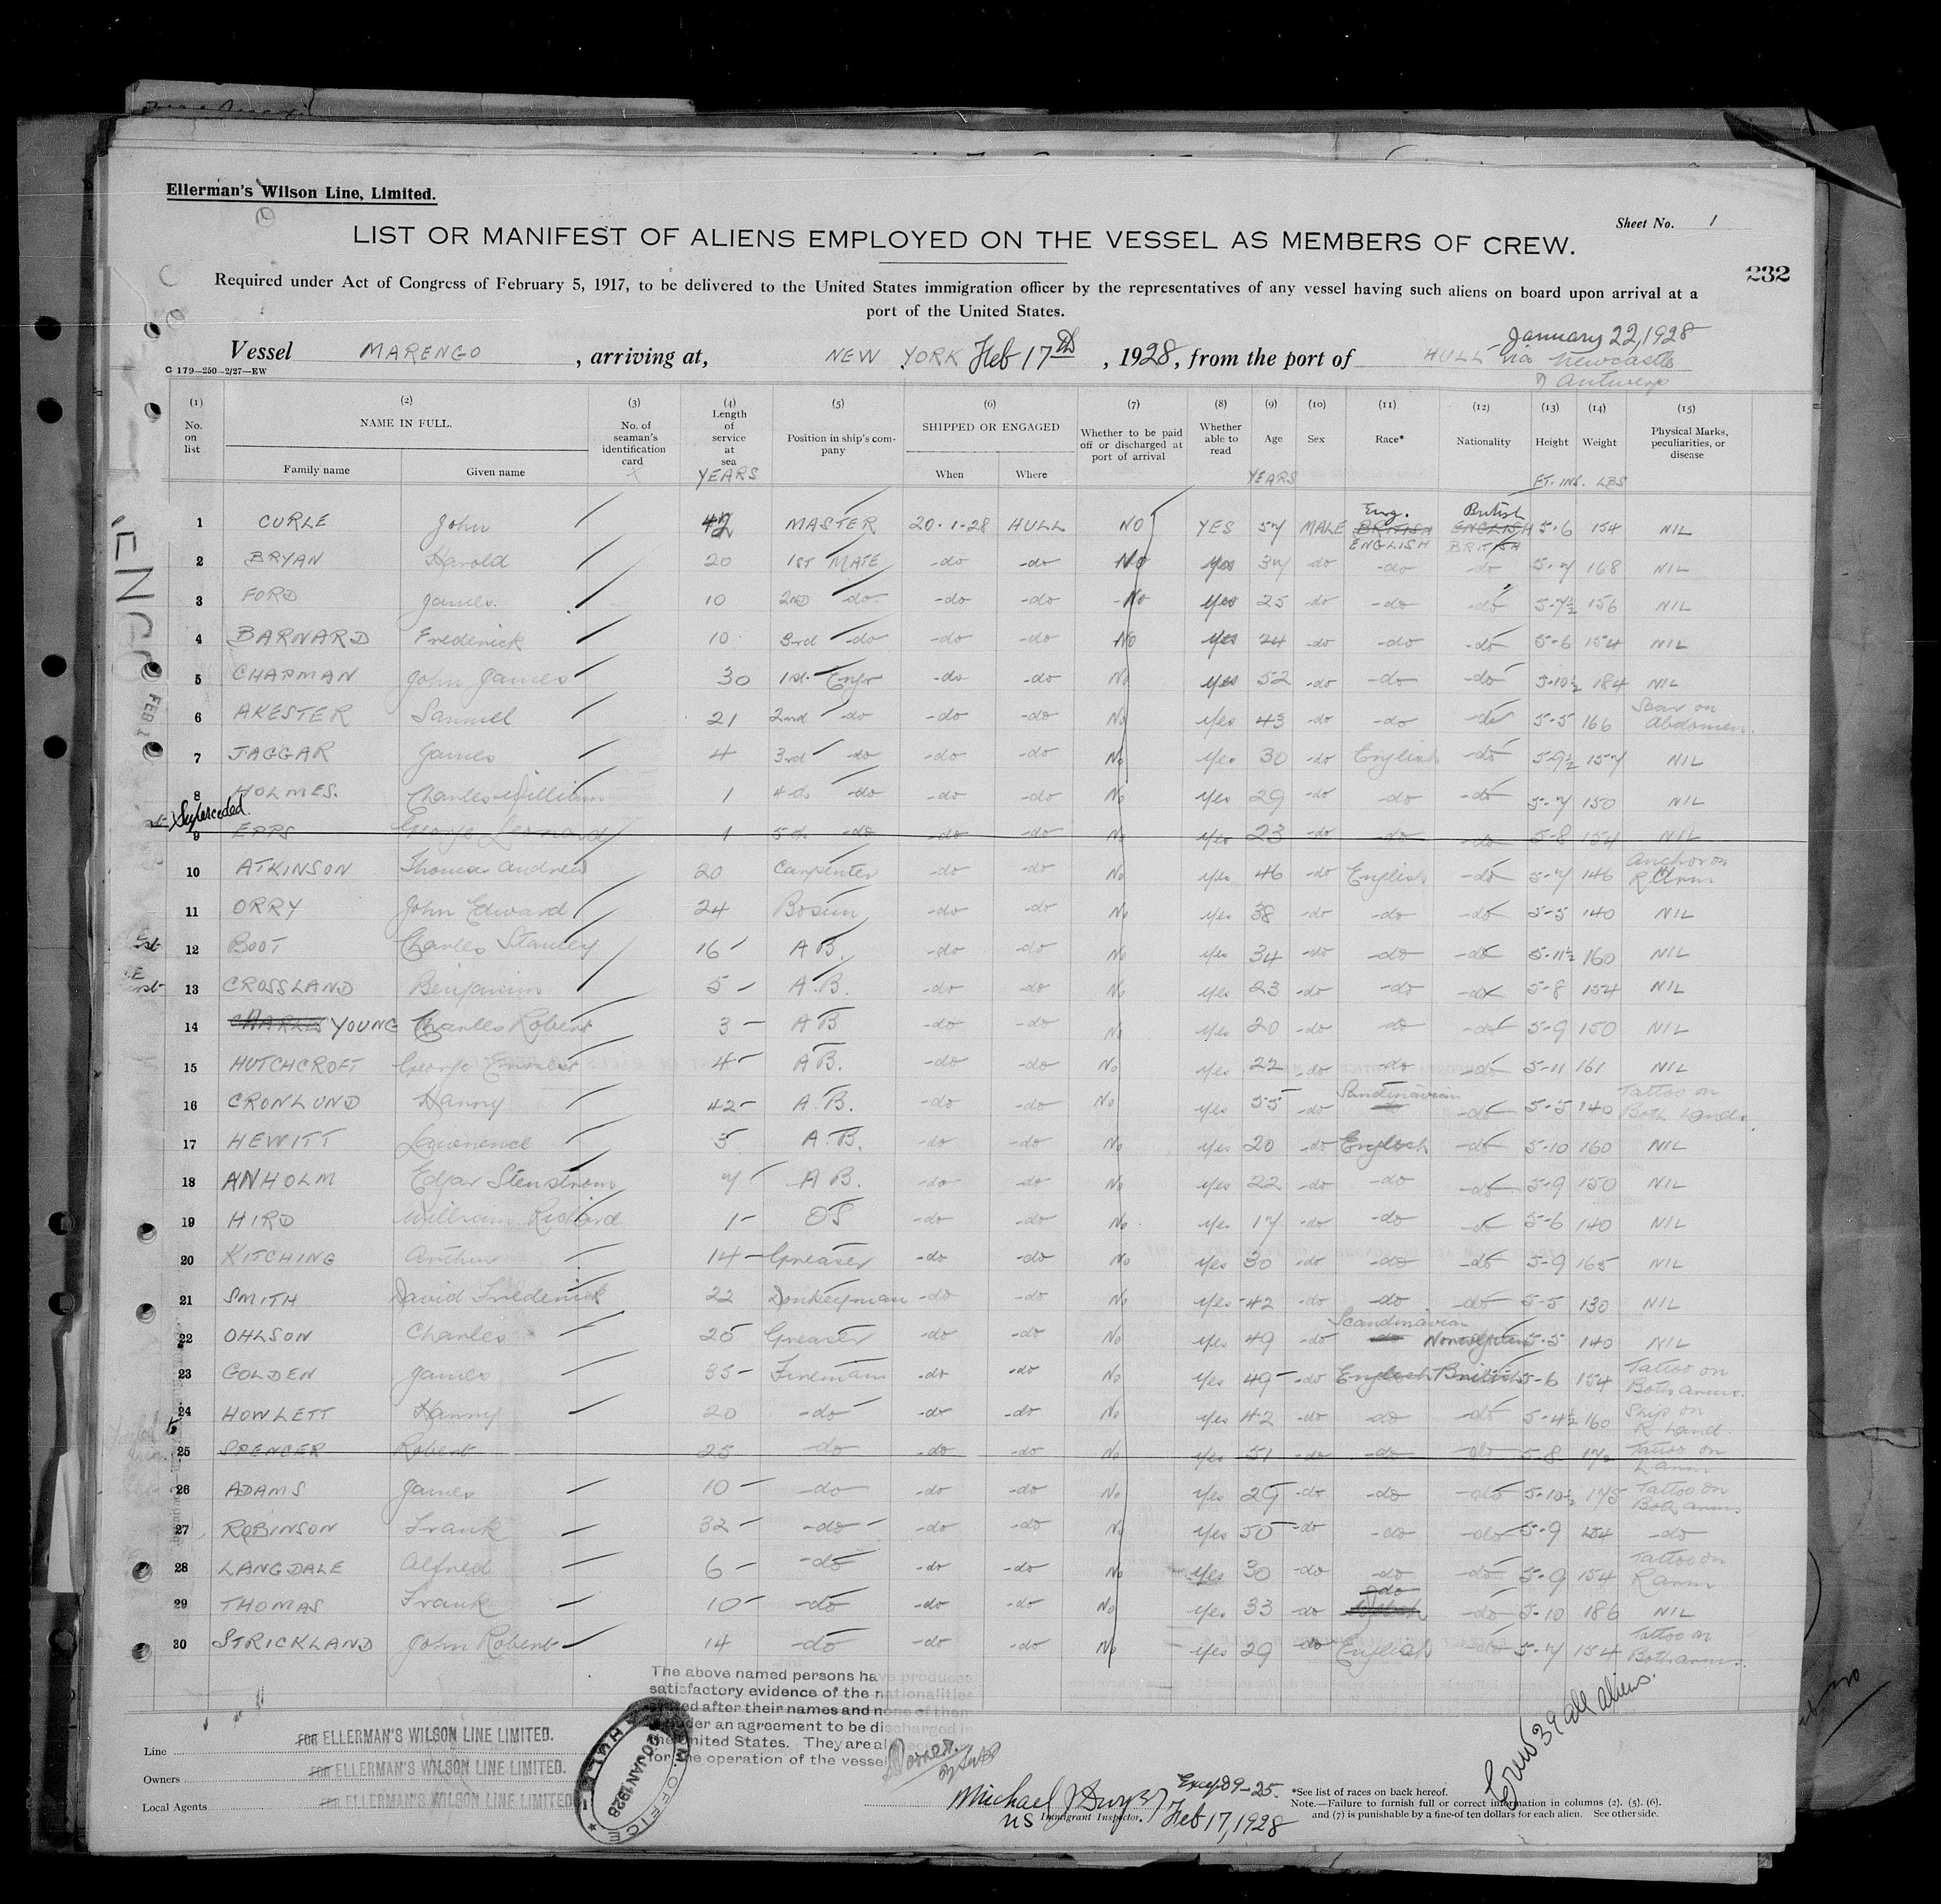 Ellerman's Wilson Line, Limited.
Sheet No. 1
LIST OR MANIFEST OF ALIENS EMPLOYED ON THE VESSEL AS MEMBERS OF CREW.
232
Required under Act of Congress of February 5, 1917, to be delivered to the United States immigration officer by the representatives of any vessel having such aliens on board upon arrival at a
port of the United States.
January 22, 1928
Vessel MARENGO, arriving at, NEW YORK Feb 17th, 1928, from the port of HULL via Newcastle
& Antwerp
C 179—250—2/27—EW
(1) No. on list (2) NAME IN FULL. Family name Given name (3) No. of seaman's identification card (4) Length of service at sea YEARS (5) Position in ship's company (6) SHIPPED OR ENGAGED When Where (7) Whether to be paid off or discharged at port of arrival (8) Whether able to read (9) Age YEARS (10) Sex (11) Race* (12) Nationality (13) Height FT. INS. (14) Weight LBS (15) Physical Marks, peculiarities, or disease
1 CURLE John 42 MASTER 20.1.28 HULL NO YES 57 MALE Eng. BRITISH British ENGLISH 5-6 154 NIL
ENGLISH BRITISH
2 BRYAN Harold 20 1ST MATE -do -do No Yes 37 -do -do -do 5-7 168 NIL
3 FORD James. 10 2ND -do- -do -do No Yes 25 -do -do -do 5-7½ 156 NIL
4 BARNARD Frederick 10 3rd -do -do -do No Yes 24 -do -do -do 5-6 154 NIL
5 CHAPMAN John James 30 1st Engr -do -do No Yes 52 -do -do -do 5-10½ 184 NIL
6 AKESTER Samuel 21 2nd -do -do -do No Yes 43 -do -do -do 5-5 166 Scar on Abdomen.
7 JAGGAR James 4 3rd -do -do -do No Yes 30 -do English -do 5-9½ 157 NIL
8 HOLMES. Charles William 1 4th -do -do -do No Yes 29 -do -do -do 5-7 150 NIL
Superceded.
9 EPPS George Leonard 1 5th -do -do -do No Yes 23 -do -do -do 5-8 154 NIL
10 ATKINSON Thomas Andrew 20 Carpenter -do -do No Yes 46 -do English -do 5-7 146 Anchor on R Arm
11 ORRY John Edward 24 Bosun -do -do No Yes 38 -do -do -do 5-5 140 NIL
12 BOOT Charles Stanley 16 A B. -do -do No Yes 34 -do -do -do 5-11½ 160 NIL
13 CROSSLAND Benjamin 5 A.B. -do -do No Yes 23 -do -do -do 5-8 154 NIL
14 CHARLES YOUNG Charles Robert 3 A B -do -do No Yes 20 -do -do -do 5-9 150 NIL
15 HUTCHCROFT George Ernest 4 A B. -do -do No Yes 22 -do -do -do 5-11 161 NIL
16 CRONLUND Harry 42 A.B. -do -do No Yes 55 -do Scandinavian -do -do 5-5 140 Tattoo on Both hands.
17 HEWITT Lawrence 3 A.B. -do -do No Yes 20 -do English -do 5-10 160 NIL
18 ANHOLM Edgar Stenstrom 7 A B. -do -do No Yes 22 -do -do -do 5-9 150 NIL
19 HIRD William Richard 1 OS -do -do No Yes 17 -do -do -do 5-6 140 NIL
20 KITCHING Arthur 14 Greaser -do -do No Yes 30 -do -do -do 5-9 165 NIL
21 SMITH David Frederick 22 Donkeyman -do -do No Yes 42 -do -do -do 5-5 130 NIL
22 OHLSON Charles 25 Greaser -do -do No Yes 49 -do Scandinavian -do Norwegian 5-5 140 NIL
23 GOLDEN James 35 Fireman -do -do No Yes 49 -do English British 5-6 154 Tattoo on Both arms.
24 HOWLETT Harry 20 -do -do -do No Yes 42 -do -do -do 5-4½ 160 Ship on R hand.
25 SPENCER Robert 25 -do -do -do No Yes 51 -do -do -do 5-8 172 Tattoo on L arm
26 ADAMS James 10 -do -do -do No Yes 29 -do -do -do 5-10½ 175 Tattoo on Both arms
27 ROBINSON Frank 32 -do -do -do No Yes 50 -do -do -do 5-9 154 -do
28 LANGDALE Alfred 6 -do -do -do No Yes 30 -do -do -do 5-9 154 Tattoo on R arm
29 THOMAS Frank 10 -do -do -do No Yes 33 -do -do -do 5-10 186 NIL
30 STRICKLAND John Robert 14 -do -do -do No Yes 29 -do English -do 5-7 154 Tattoo on Both arms.
The above named persons have produced
satisfactory evidence of the nationalities
stated after their names and none of them
is under an agreement to be discharged in
the United States. They are all
for the operation of the vessel
Line FOR ELLERMAN'S WILSON LINE LIMITED.
Owners FOR ELLERMAN'S WILSON LINE LIMITED.
Local Agents FOR ELLERMAN'S WILSON LINE LIMITED
HULL 20 JAN 1928 OFFICE
Crew 39 all aliens.
Except 9-25.
Michael J Dwyer
US Immigrant Inspector. Feb 17, 1928
*See list of races on back hereof.
Note.—Failure to furnish full or correct information in columns (2). (5). (6).
and (7) is punishable by a fine of ten dollars for each alien. See other side.